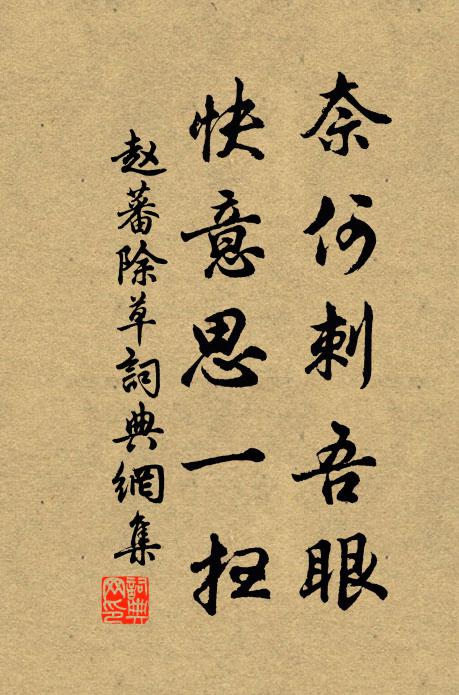 奈何刺吾眼
快意思一扫
赵蕃除草詞典網集
詞典网印